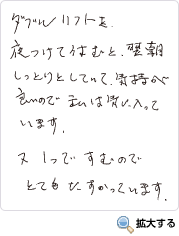 ダブルリフトを、
夜つけてうすむと、翌朝
しっとりとしていて、気持が
良いので 私は気に入って
います。
又 1つですむので
とてもたすかっています。
拡大する